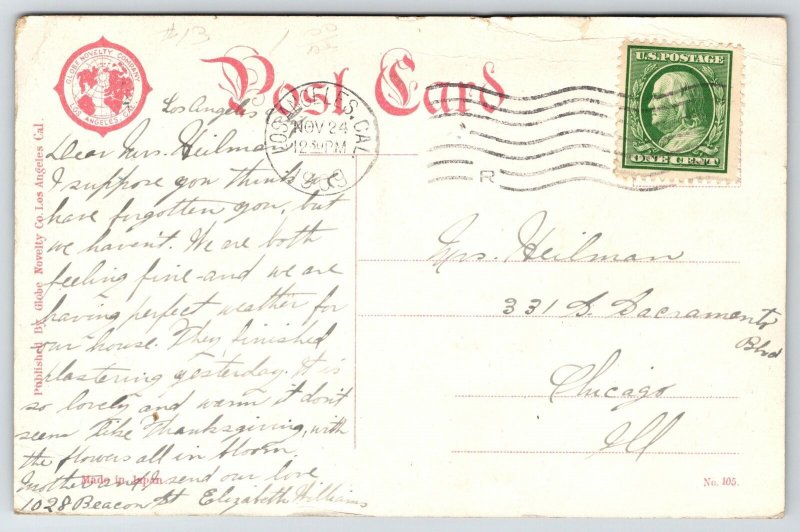 #13
GLOBE NOVELTY COMPANY
LOS ANGELES, CAL.
Post Card
U.S. POSTAGE
ONE CENT
LOS ANGELES, CAL.
NOV 24
12 30 PM
1909
R
Los Angeles
Dear Mrs. Heilman
I suppose you think we
have forgotten you, but
we haven't. We are both
feeling fine - and we are
having perfect weather for
our house. They finished
plastering yesterday. It is
so lovely and warm it don't
seem like Thanksgiving, with
the flowers all in bloom.
Mother and I send our love
1028 Beacon St Elizabeth Williams
Mrs. Heilman
331 S. Sacramento
Blvd
Chicago
Ill
Published By Globe Novelty Co. Los Angeles Cal.
Made in Japan
No. 105.